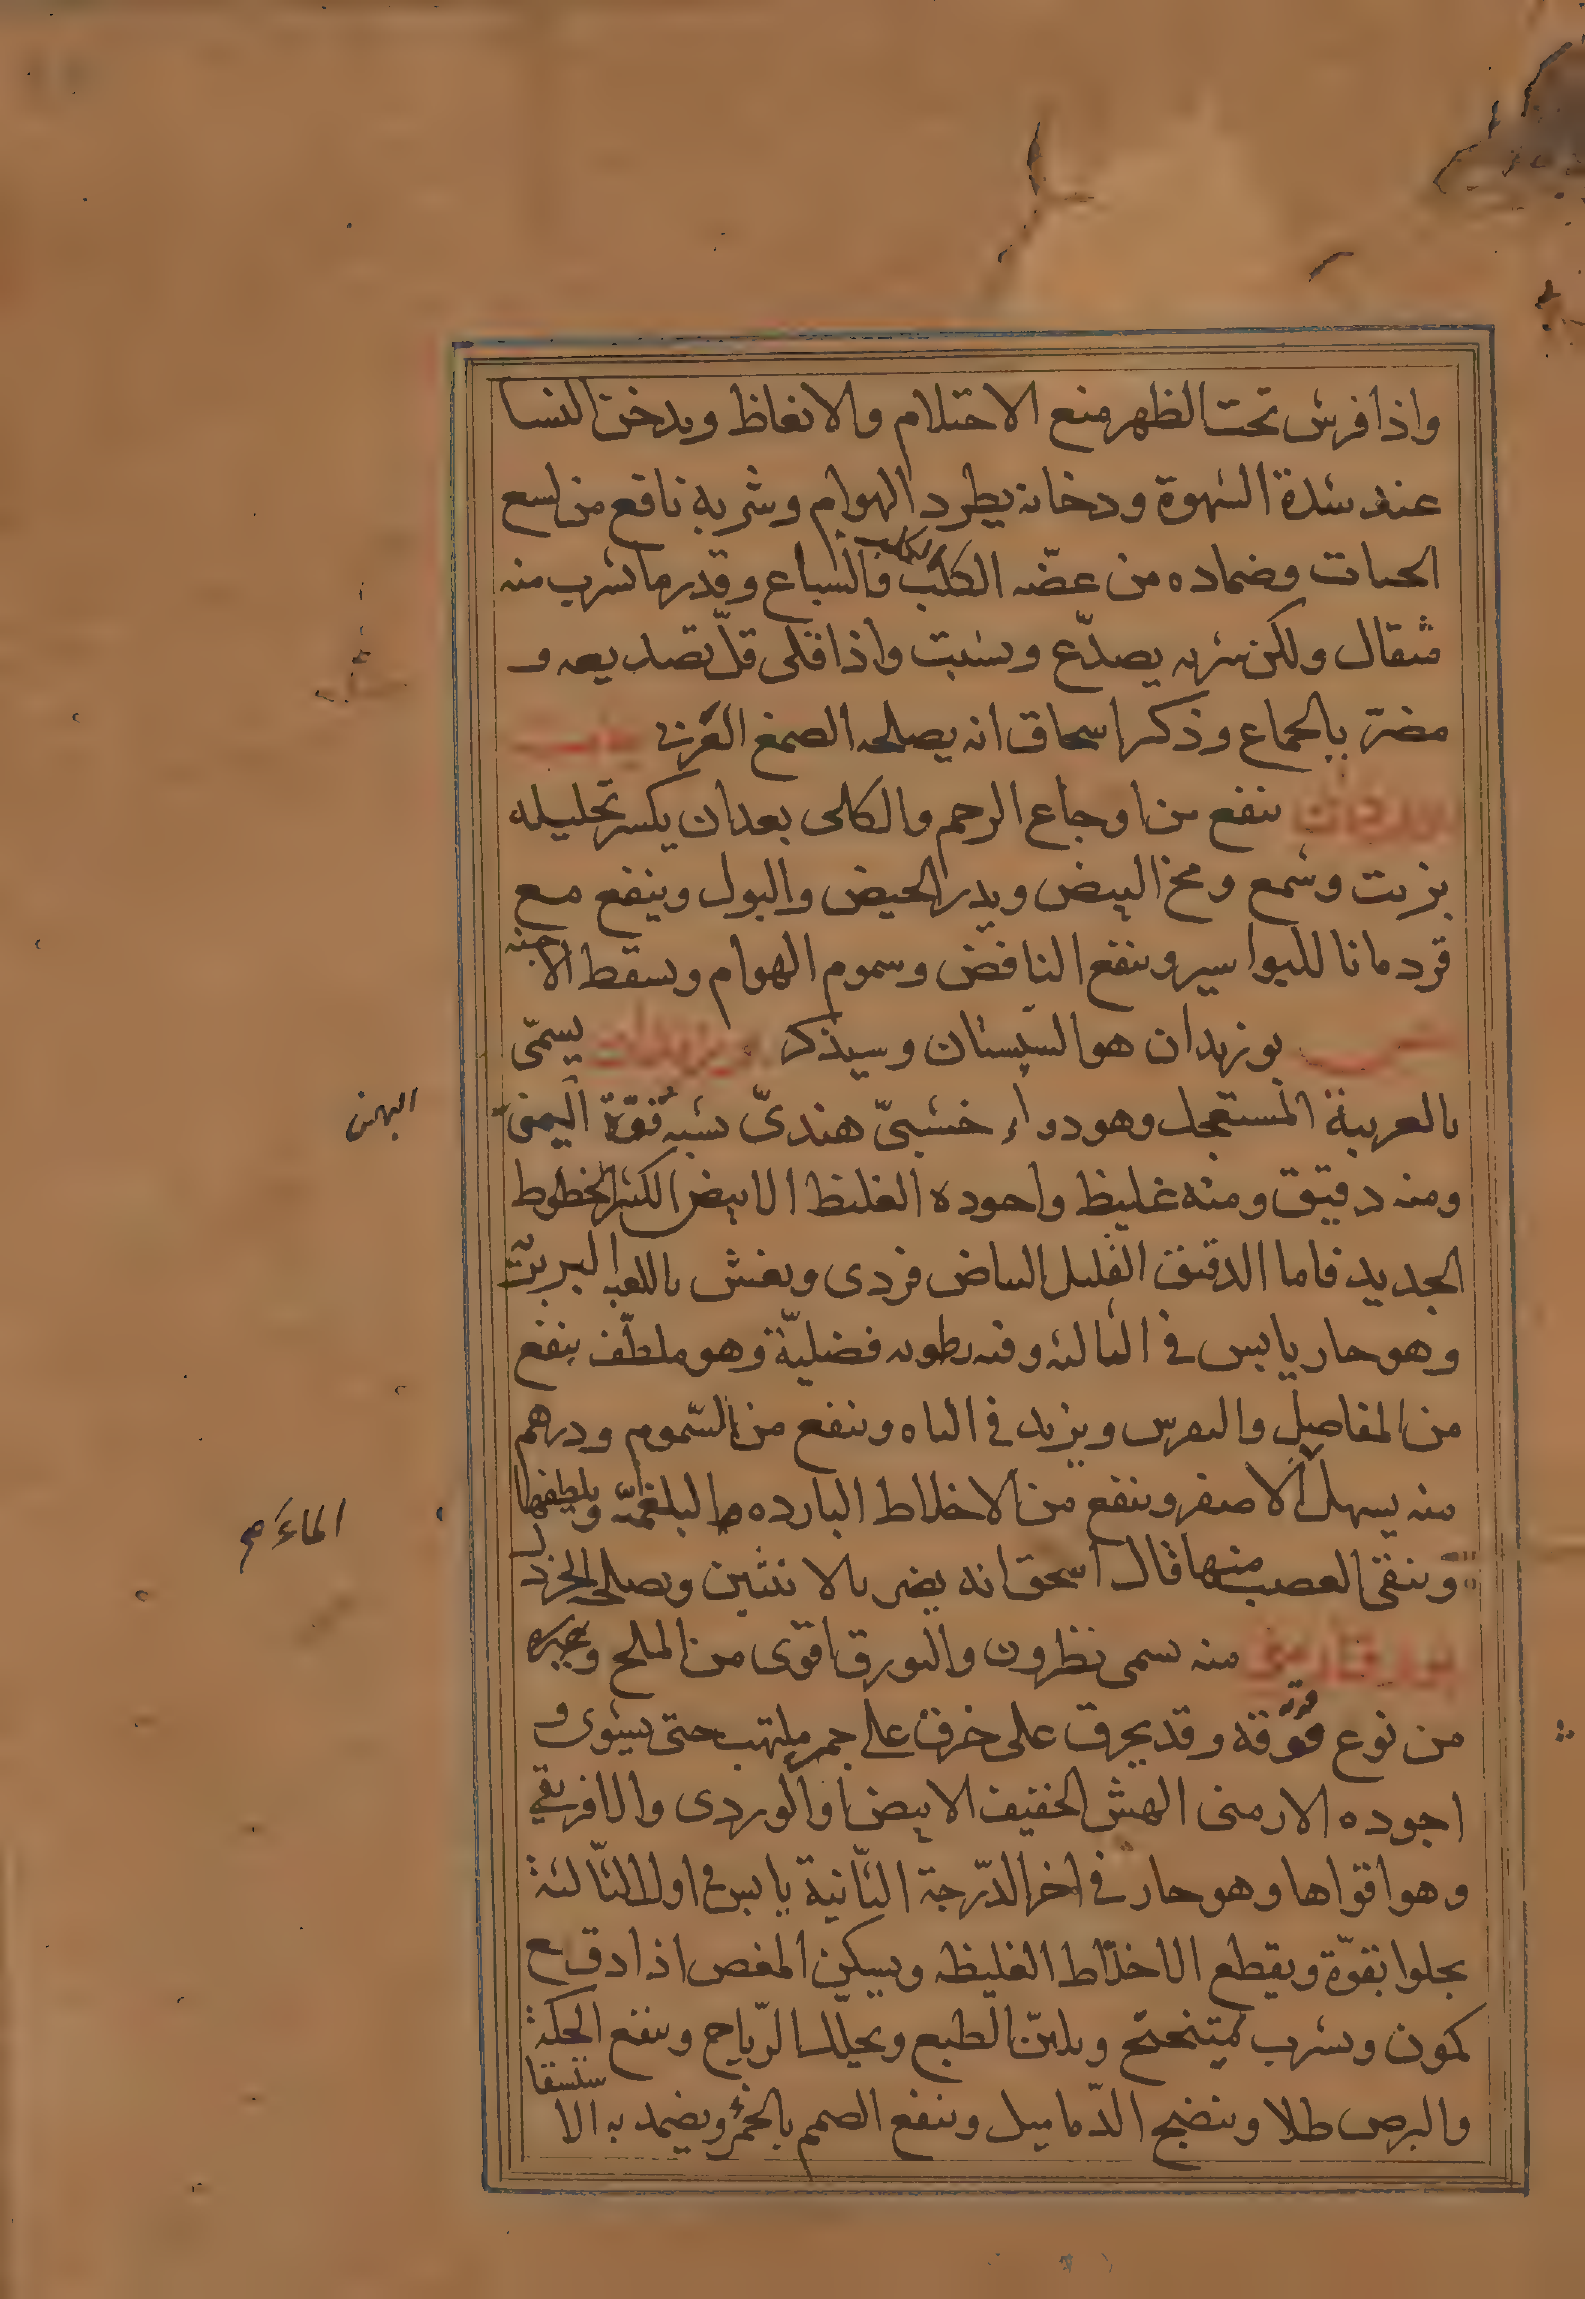 واذا فرش تحت الظهر منع الاحتلام والانعاظ ويدخن النسا
عند شدة الشهوة ودخانه يطرد الهوام وشربه نافع من لسع
الحيات وضماده من عضّه الكلب الكلب والسباع وقدر ما يشرب منه
مثقال ولكن شربه يصدّع ويسبت واذا قلى قلّ تصديعه و
مضرّ بالجماع وذكر اسحاق انه يصلحه الصمغ العربى
ينفع من اوجاع الرحم والكلى بعد ان يكسر تحليله
بزيت وشمع ومخ البيض ويدر الحيض والبول وينفع مع
قردمانا للبواسير وينفع النافض وسموم الهوام ويسقط الاجنه
بوزيدان هو السبستان وسيذكر بوزيدان يسمّى
بالعربية المستعجل وهو دواء خشبىّ هندىّ يشبه قوّة
البهمن
ومنه دقيق ومنه غليظ واجوده الغليظ الابيض الكثير الخطوط
الجديد فاما الدقيق القليل البياض فردى ويغش باللعبة البربريّة
وهو حار يابس فى الثالثه وفيه رطوبه فضليّة وهو ملطّف ينفع
من المفاصل والنقرس ويزيد فى الباه وينفع من السّموم ودرهم
منه يسهل الاصفر وينفع من الاخلاط البارده البلغميّه ويلطفها
الماء صح
وينقى العصب منها قال اسحق انه يضر بالانثيين ويصلحه الخردل
منه يسمى نظرون والبورق اقوى من الملح وغيره
من نوع قوّته وقد يحرق على خزف على جمر ملتهب حتى يستوى و
اجوده الارمنى الهش الخفيف الابيض او الوردى والافريقي
وهو اقواها وهو حار فى اخر الدّرجة الثّانية يابس فى اول الثّالثة
يجلوا بقوّة ويقطع الاخلاط الغليظه ويسكن المغص اذا دق مع
كمون ويشرب بميبختج ويليّن الطبع ويحلل الرّياح وينفع الحكة
والبرص طلا وينضج الدّماميل وينفع الصمم بالخمر ويضمد به الاستسقا